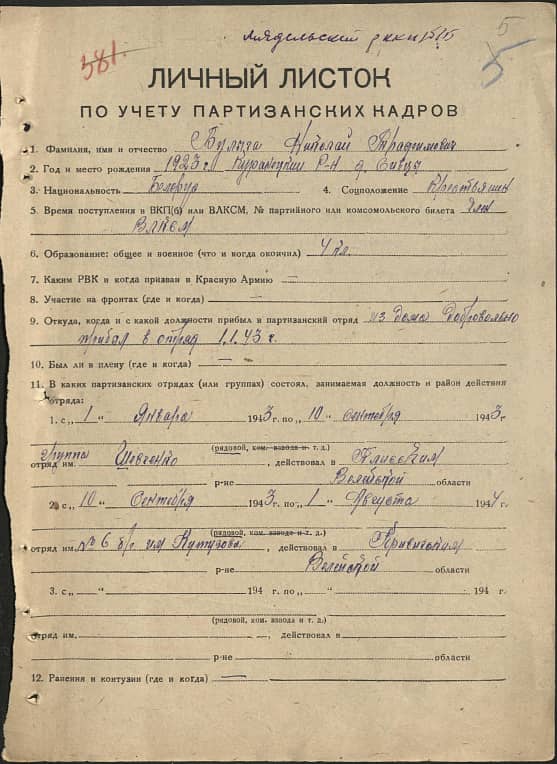 5
381.
5
ЛИЧНЫЙ ЛИСТОК
ПО УЧЕТУ ПАРТИЗАНСКИХ КАДРОВ
1. Фамилия, имя и отчество Николай Трафимович
2. Год и место рождения 1923 г. р-н д.
3. Национальность Белорус 4. Соцположение Крестьянин
5. Время поступления в ВКП(б) или ВЛКСМ, № партийного или комсомольского билета член
ВЛКСМ
6. Образование: общее и военное (что и когда окончил) 4 кл.
7. Каким РВК и когда призван в Красную Армию —
8. Участие на фронтах (где и когда)
9. Откуда, когда и с какой должности прибыл в партизанский отряд из дома добровольно
прибыл в отряд 1.1.43 г.
10. Был ли в плену (где и когда) —
11. В каких партизанских отрядах (или группах) состоял, занимаемая должность и район действия
отряда:
1. с „ 1 “ Января 1943 г. по „ 10 “ сентября 1943 г.
(рядовой, ком. взвода и т. д.)
группа
отряд им. Шевченко, действовал в
р-не Велейской области
2. с „ 10 “ Сентября 1943 г. по „ 1 “ Августа 1944 г.
(рядовой, ком. взвода и т. д.)
отряд им. № 6 бр. им Кутузова, действовал в
р-не Велейской области
3. с „ “ 194 г. по „ “ 194 г.
(рядовой, ком. взвода и т. д.)
отряд им. —, действовал в
р-не области
12. Ранения и контузии (где и когда) —